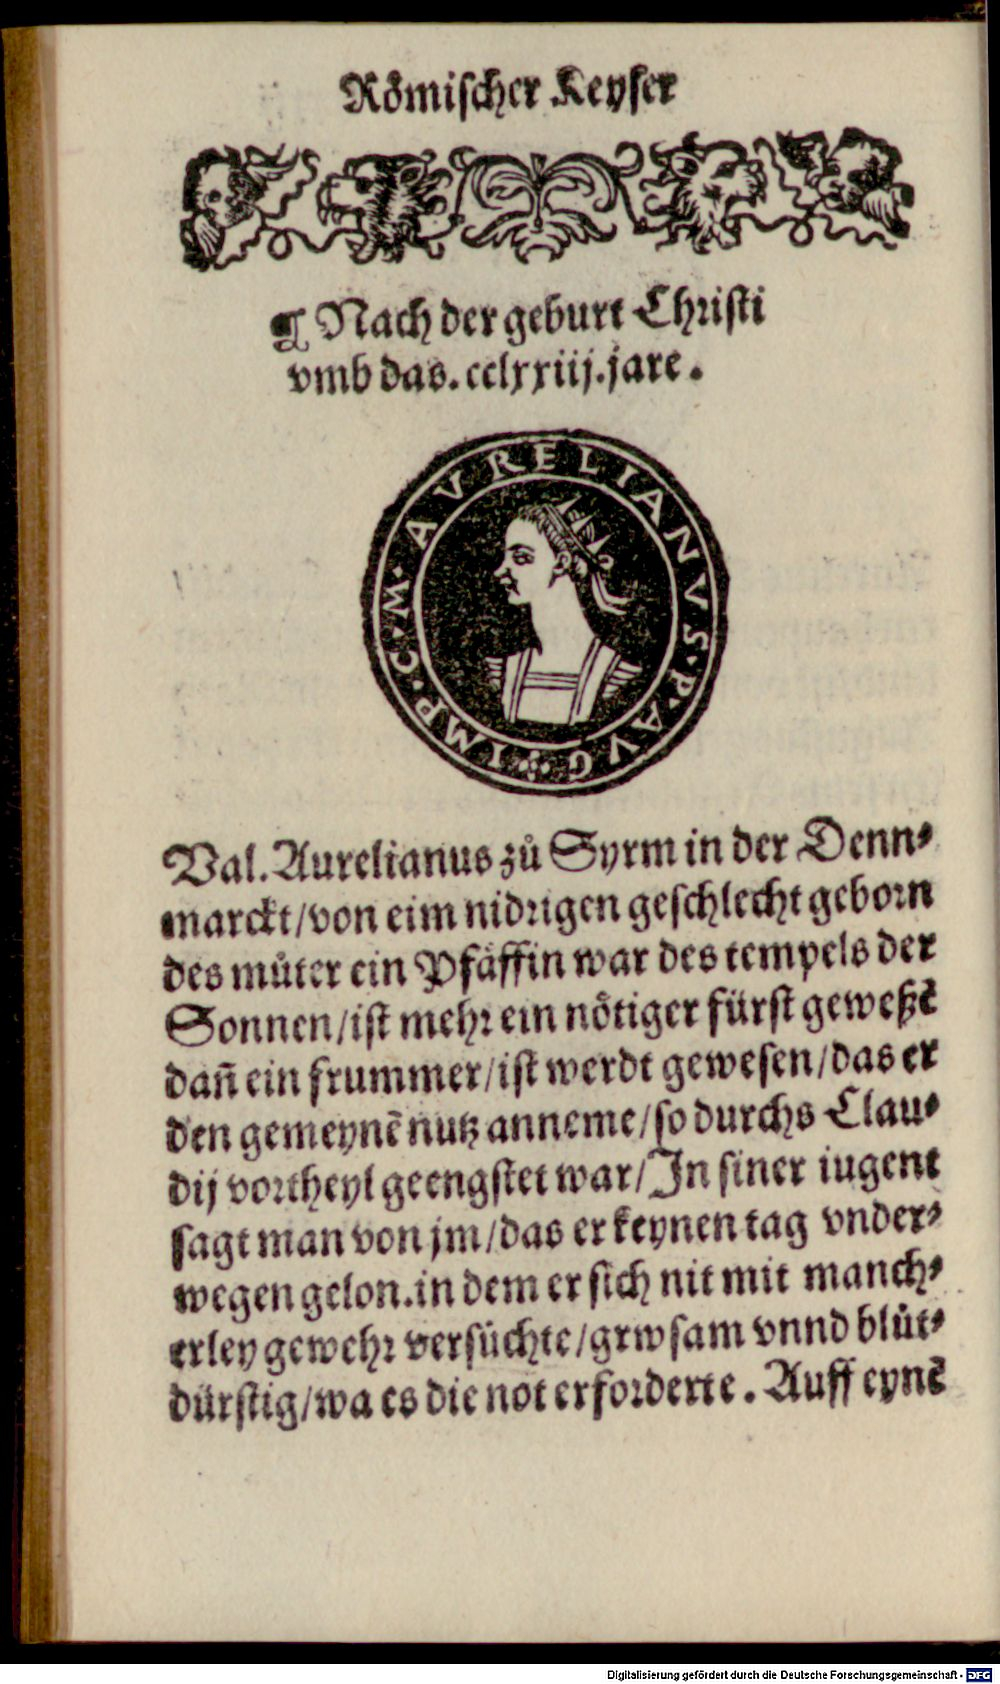 Römischer Keyser
¶ Nach der geburt Christi
vmb das. cclxxiij. jare.
IMP. C. M. AVRELIANVS. P. AVG
Val. Aurelianus zů Syrm in der Denn⸗
marckt/von eim nidrigen geschlecht geborn
des můter ein Pfäffin war des tempels der
Sonnen/ist mehr ein nötiger fürst geweßē
dañ ein frummer/ist werdt gewesen/das er
den gemeynē nutz anneme/so durchs Clau⸗
dij vortheyl geengstet war/In siner iugent
sagt man von jm/das er keynen tag vnder⸗
wegen gelon.in dem er sich nit mit manch⸗
erley gewehr versüchte/grwsam vnnd blůt⸗
dürstig/wa es die not erforderte. Auff eynē
Digitalisierung gefördert durch die Deutsche Forschungsgemeinschaft - DFG